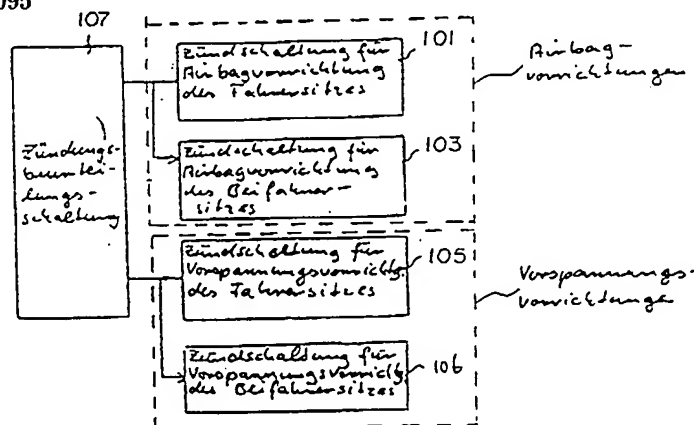 095
107
Zündungs-
beurtei-
lungs-
schaltung
Zündschaltung für
Airbagvorrichtung
des Fahrersitzes
101
Zündschaltung für
Airbagvorrichtung
des Beifahrer-
sitzes
103
Airbag-
vorrichtungen
Zündschaltung für
Vorspannungsvorrichtg
des Fahrersitzes
105
Zündschaltung für
Vorspannungsvorrichtg
des Beifahrersitzes
106
Vorspannungs-
vorrichtungen